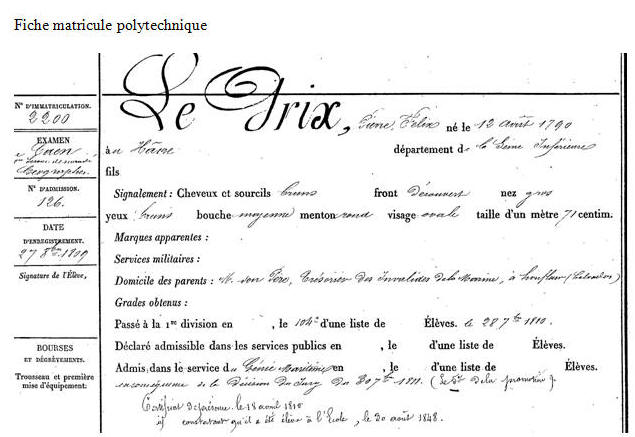 Fiche matricule polytechnique
N° D'IMMATRICULATION.
2200
EXAMEN
à Caen
géographes.
N° D'ADMISSION.
126.
DATE
D'ENREGISTREMENT.
27 8bre 1809
Signature de l'Élève,
BOURSES
ET DÉGRÈVEMENTS.
Trousseau et première
mise d'équipement:
Le Prix, Pierre Félix né le 12 août 1790
au Hâvre département de la Seine Inférieure
fils
Signalement : Cheveux et sourcils bruns front découvert nez gros
yeux bruns bouche moyenne menton rond visage ovale taille d'un mètre 71 centim.
Marques apparentes :
Services militaires :
Domicile des parents : M. son Père, Trésorier des Invalides de la Marine, à honfleur (Calvados)
Grades obtenus :
Passé à la 1re division en , le 104e d'une liste de Élèves. le 28 7bre 1810.
Déclaré admissible dans les services publics en , le d'une liste de Élèves.
Admis dans le service du Génie Maritime en , le d'une liste de Élèves.
en conséquence de la décision du Jury du 30 7bre 1811. (Le 5e de la promotion).
Certificat de présence le 18 avril 1810
id constatant qu'il a été élève à l'École, le 30 août 1848.